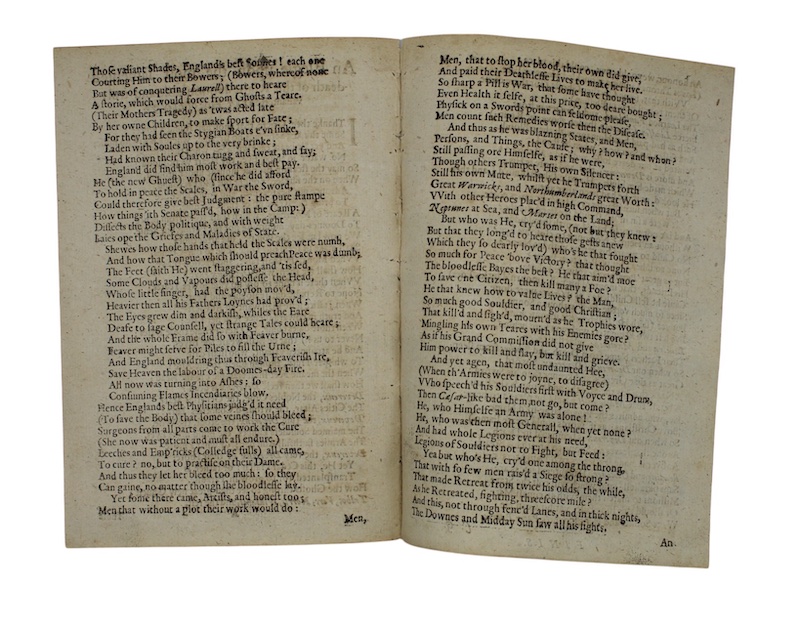 Those valiant Shades, Englands best Souldiers! each one
Courting Him to their Bowers; (Bowers, whereof none
But was of conquering Laurell) there to heare
A storie, which would force from Ghosts a Teare.
(Their Mothers Tragedy) as 'twas acted late
By her owne Children, to make sport for Fate;
For they had seen the Stygian Boats e'vn sinke,
Laden with Soules up to the very brinke;
Had known their Charon tugg and sweat, and say;
England did find him most work and best pay.
He (the new Ghuest) who (since he did afford
To hold in peace the Scales, in War the Sword,
Could therefore give best Judgment: the pure stampe
How things 'ith Senate pass'd, how in the Camp:)
Dissects the Body politique, and with weight
Laies ope the Griefes and Maladies of State.
Shewes how those hands that held the Scales were numb,
And how that Tongue which should preach Peace was dumb;
The Feet (saith He) went staggering, and 'tis sed,
Some Clouds and Vapours did possesse the Head,
Whose little finger, had the poyson mov'd,
Heavier then all his Fathers Loynes had prov'd;
The Eyes grew dim and darkish, whiles the Eare
Deafe to sage Counsell, yet strange Tales could heare;
And the whole Frame did so with Feaver burne,
Feaver might serve for Piles to fill the Urne;
And England mouldring thus through Feaverish Ire,
Save Heaven the labour of a Doomes-day Fire.
All now was turning into Ashes: so
Consuming Flames Incendiaries blow.
Hence Englands best Physitians judg'd it need
(To save the Body) that some veines should bleed;
Surgeons from all parts come to work the Cure
(She now was patient and must all endure.)
Leeches and Emp'ricks (Colledge fulls) all came,
To cure? no, but to practise on their Dame.
And thus they let her bleed too much: so they
Can gaine, no matter though she bloodlesse lay.
Yet some there came, Artists, and honest too;
Men that without a plot their work would do:
Men,
Men, that to stop her blood, their own did give,
And paid their Deathlesse Lives to make her live.
So sharp a Pill is War, that some have thought
Even Health it selfe, at this price, too deare bought;
Physick on a Swords point can seldome please,
Men count such Remedies worse then the Disease.
And thus as he was blazning States, and Men,
Persons, and Things, the Cause; why? how? and whon?
Still passing ore Himselfe, as if he were,
Though others Trumpet, His own Silencer:
Still his own Mute, whilst yet he Trumpets forth
Great Warwicks, and Northumberlands great Worth:
VVith other Heroes plac'd in high Command,
Neptunes at Sea, and Marses on the Land;
But who was He, cry'd some, (not but they knew:
But that they long'd to heare those gests anew
Which they so dearly lov'd) who's he that fought
So much for Peace 'bove Victory? that thought
The bloodlesse Bayes the best? He that aim'd moe
To save one Citizen, then kill many a Foe?
He that knew how to value Lives? the Man,
So much good Souldier, and good Christian;
That kill'd and sigh'd, mourn'd as he Trophies wore,
Mingling his own Teares with his Enemies gore?
As if his Grand Commission did not give
Him power to kill and slay, but kill and grieve.
And yet agen, that most undaunted Hee,
(When th'Armies were to joyne, to disagree)
VVho speech'd his Souldiers first with Voyce and Drum,
Then Cæsar-like bad them not go, but come?
He, who Himselfe an Army was alone!
He, who was then most Generall, when yet none?
And had whole Legions ever at his need,
Legions of Souldiers not to Fight, but Feed:
Yea but who's He, cry'd one among the throng,
That with so few men rais'd a Siege so strong?
That made Retreat from twice his odds, the while,
As he Retreated, fighting, threescore mile?
And this, not through fenc'd Lanes, and in thick nights,
The Downes and Midday Sun saw all his fights.
An